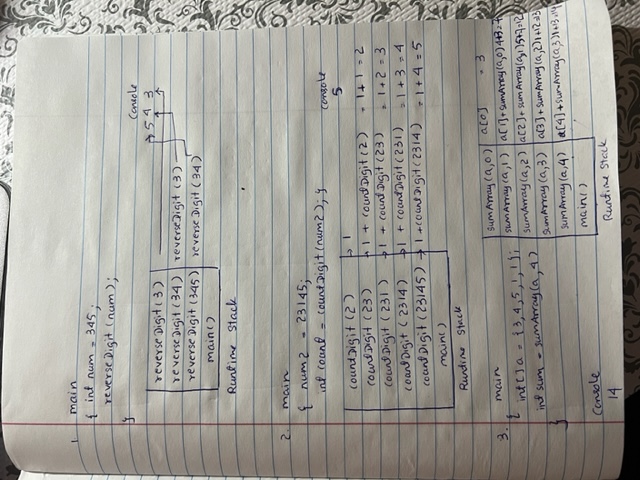 1. main
{ int num = 345;
reverseDigit(num);
}
Console
5 4 3
reverseDigit(3)
reverseDigit(34) reverseDigit(3)
reverseDigit(345) reverseDigit(34)
main()
Runtime Stack
2. main
{ num2 = 23145;
int count = countDigit(num2); }
Console
5
countDigit(2) → 1
countDigit(23) → 1 + countDigit(2) = 1+1 = 2
countDigit(231) → 1 + countDigit(23) = 1+2 = 3
countDigit(2314) → 1 + countDigit(231) = 1+3 = 4
countDigit(23145) → 1 + countDigit(2314) = 1+4 = 5
main()
Runtime Stack
3. main
{ int[] a = {3,4,5,1,1};
int sum = sumArray(a,4)
}
sumArray(a,0) a[0] = 3
sumArray(a,1) a[1]+sumArray(a,0) 4+3=7
sumArray(a,2) a[2]+sumArray(a,1) 5+7=12
sumArray(a,3) a[3]+sumArray(a,2) 1+12=13
sumArray(a,4) a[4]+sumArray(a,3) 1+13=14
main()
Runtime Stack
Console
14